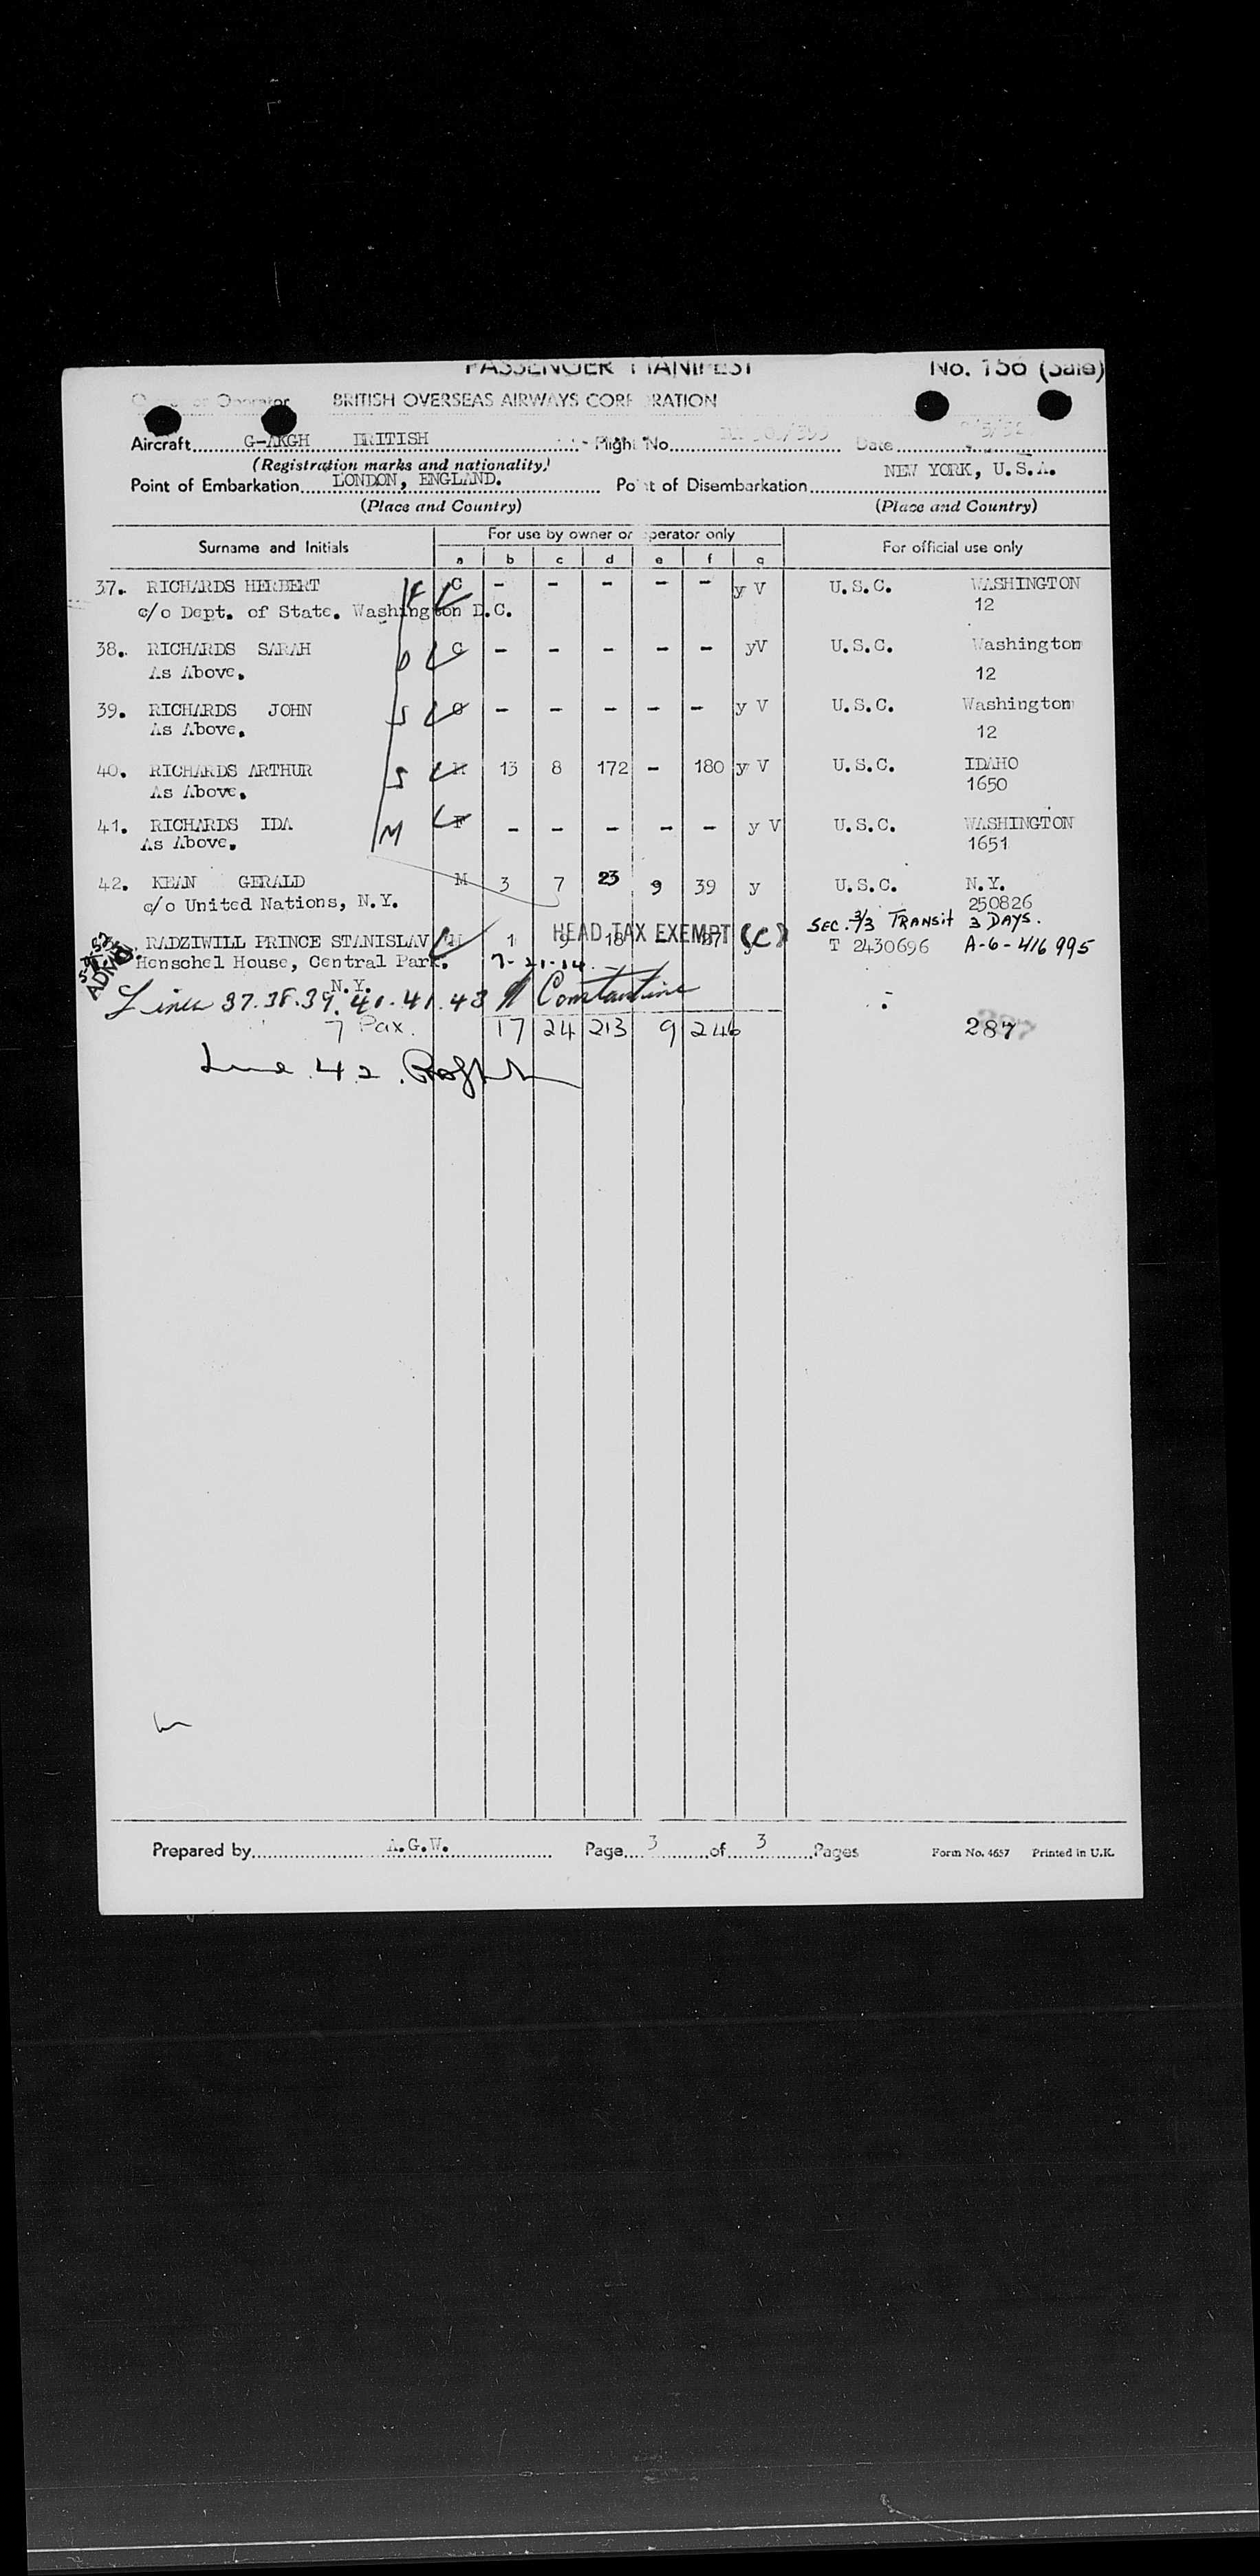 PASSENGER MANIFEST No. 156 (Sale)
Operator BRITISH OVERSEAS AIRWAYS CORPORATION
Aircraft G-AKGH BRITISH Flight No. Date
(Registration marks and nationality) NEW YORK, U.S.A.
Point of Embarkation LONDON, ENGLAND. Point of Disembarkation
(Place and Country) (Place and Country)
Surname and Initials For use by owner or operator only For official use only
a b c d e f g
37. RICHARDS HERBERT F C - - - - - y V U.S.C. WASHINGTON
c/o Dept. of State. Washington D.C. 12
38. RICHARDS SARAH D C - - - - - yV U.S.C. Washington
As Above. 12
39. RICHARDS JOHN S C - - - - - y V U.S.C. Washington
As Above. 12
40. RICHARDS ARTHUR S M 13 8 172 - 180 y V U.S.C. IDAHO
As Above. 1650
41. RICHARDS IDA M F - - - - - y V U.S.C. WASHINGTON
As Above. 1651
42. KEAN GERALD M 3 7 23 9 39 y U.S.C. N.Y.
c/o United Nations, N.Y. 250826
SEC. 3/3 TRANSIT 3 DAYS.
RADZIWILL PRINCE STANISLAV M 1 9 18 - HEAD TAX EXEMPT (C) T 2430696 A-6-416995
ADMD.
Henschel House, Central Park. 7-21-14
N.Y.
Lines 37.38.39.40.41.43 Constantine
7 Pax. 17 24 213 9 246 287
Line 42.
Prepared by A.G.W. Page 3 of 3 Pages Form No. 4657 Printed in U.K.